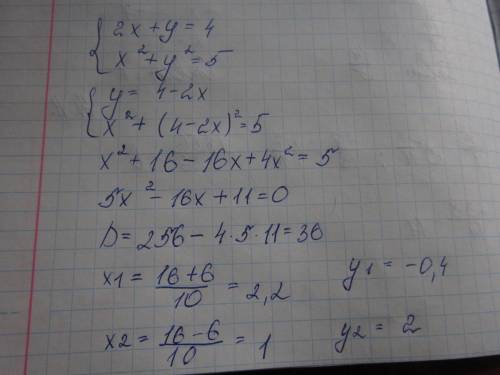 2x+y=4
x²+y²=5
y= 4-2x
x²+(4-2x)²=5
x²+16-16x+4x²=5
5x²-16x+11=0
D=256-4·5·11=36
x1 = (16+6)/10 = 2,2 y1 = -0,4
x2 = (16-6)/10 = 1 y2 = 2